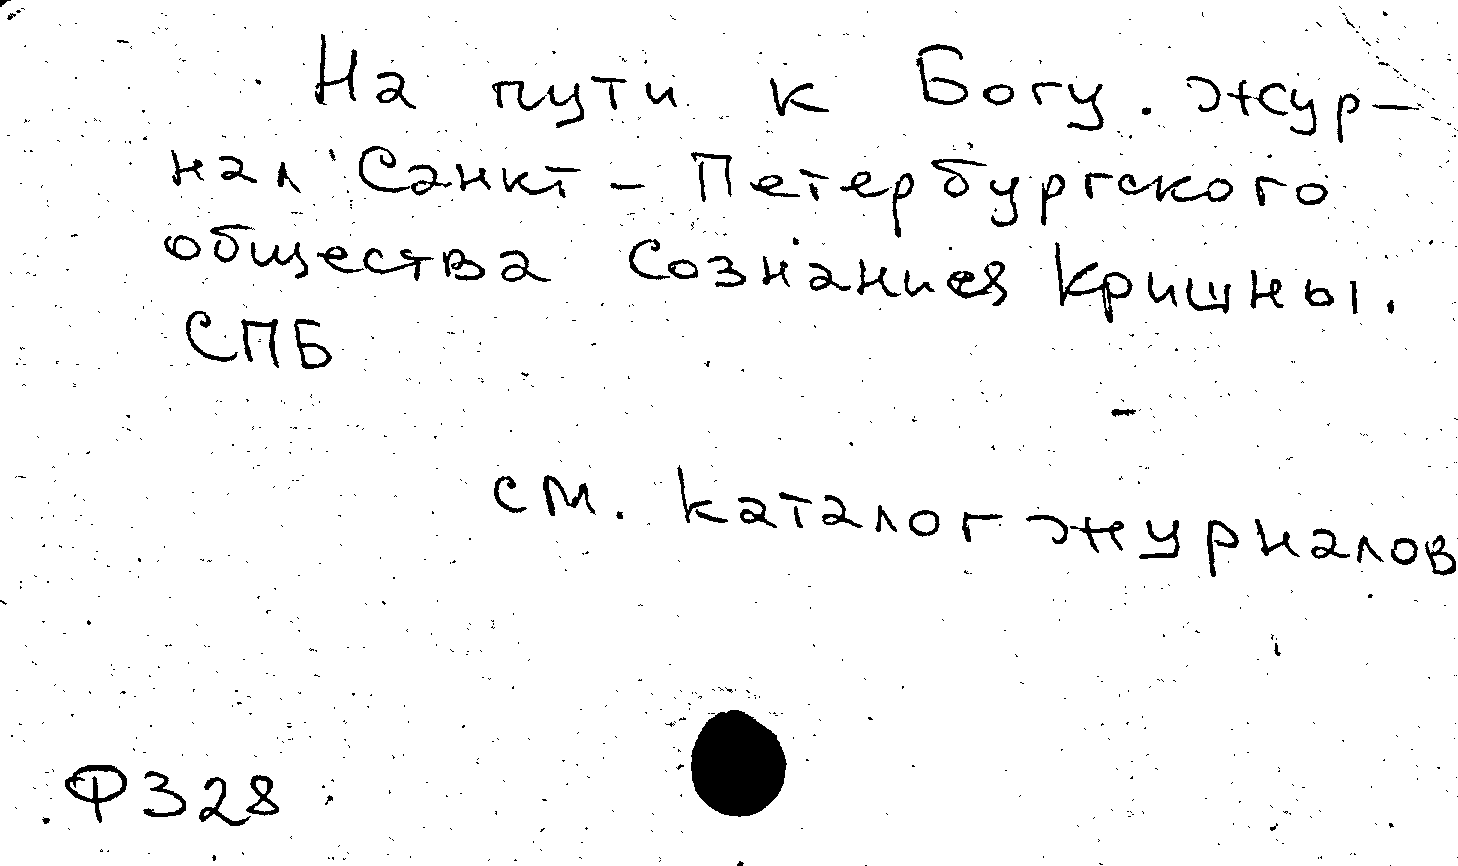 На пути к Богу. Жур-
нал Санкт-Петербургского
общества Сознания Кришны.
СПБ
см. каталог журналов
Ф328